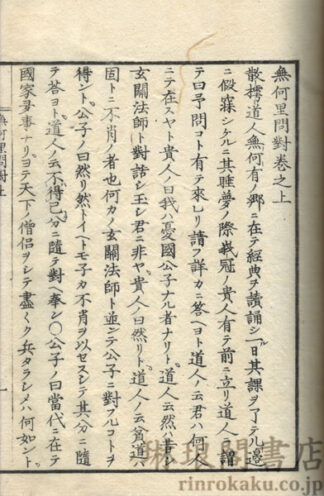 無何里問對巻之上
散樗道人無何有ノ郷ニ在テ經典ヲ讀誦シ一日其課ヲ了テル邊
ニ假寐シケルニ其睡夢ノ際峩冠ノ貴人有テ前ニ立リ道人ニ謂
テ曰予問コト有テ來レリ請フ詳カニ答ヘヨト道人ノ云君ハ何レ
ニテ在スヤト貴人ノ曰我ハ憂國公子ナル者ナリト道人云然ラ書シ
玄關法師ト對話シ玉シ君ニ非ヤ貴人ノ曰然リト道人ノ云貧道ハ
固トニ不肖ノ者也何カ玄關法師ト並シテ公子ニ對フルコトヲ
得ント公子ノ曰然リ然トイヘトモ子カ不肖ヲ以セスシテ其分ニ隨
テ答ヨト道人云不得已分ニ隨テ對ヘ奉シ○公子ノ曰當代ニ在テ
國家多事ナリヨテ天下ノ僧侶ヲシテ盡ク兵タラシメハ何如ント
無何里問對上
琳琅閣書店
rinrokaku.co.jp